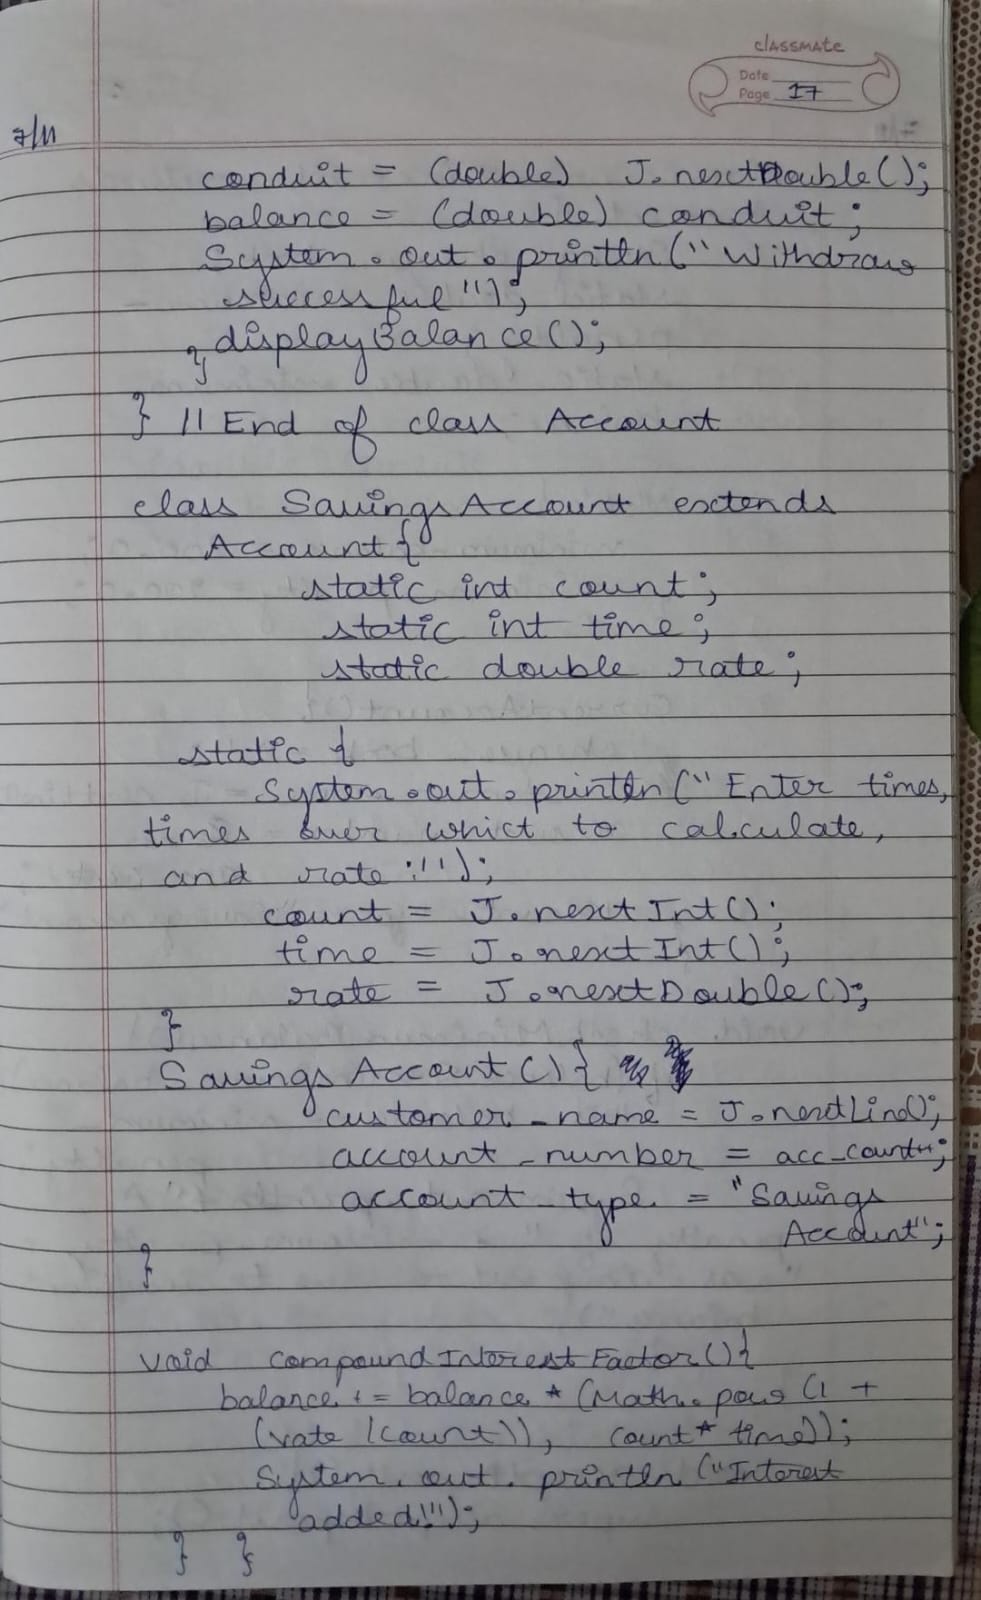 classmate
Date
Page 17
7/11
conduit = (double) J.nextDouble();
balance = (double) conduit;
System.out.println("Withdraw
successful");
displayBalance();
}
} // End of class Account
class SavingsAccount extends
Account{
static int count;
static int time;
static double rate;
static {
System.out.println("Enter times,
times over whict to calculate,
and rate:");
count = J.nextInt();
time = J.nextInt();
rate = J.nextDouble();
}
SavingsAccount(){
customer_name = J.nextLine();
account_number = acc_count++;
account_type = "Savings
Account";
}
void compoundInterestFactor(){
balance += balance * (Math.pow(1 +
(rate/count)), count* time));
System.out.println("Interest
added!");
} }